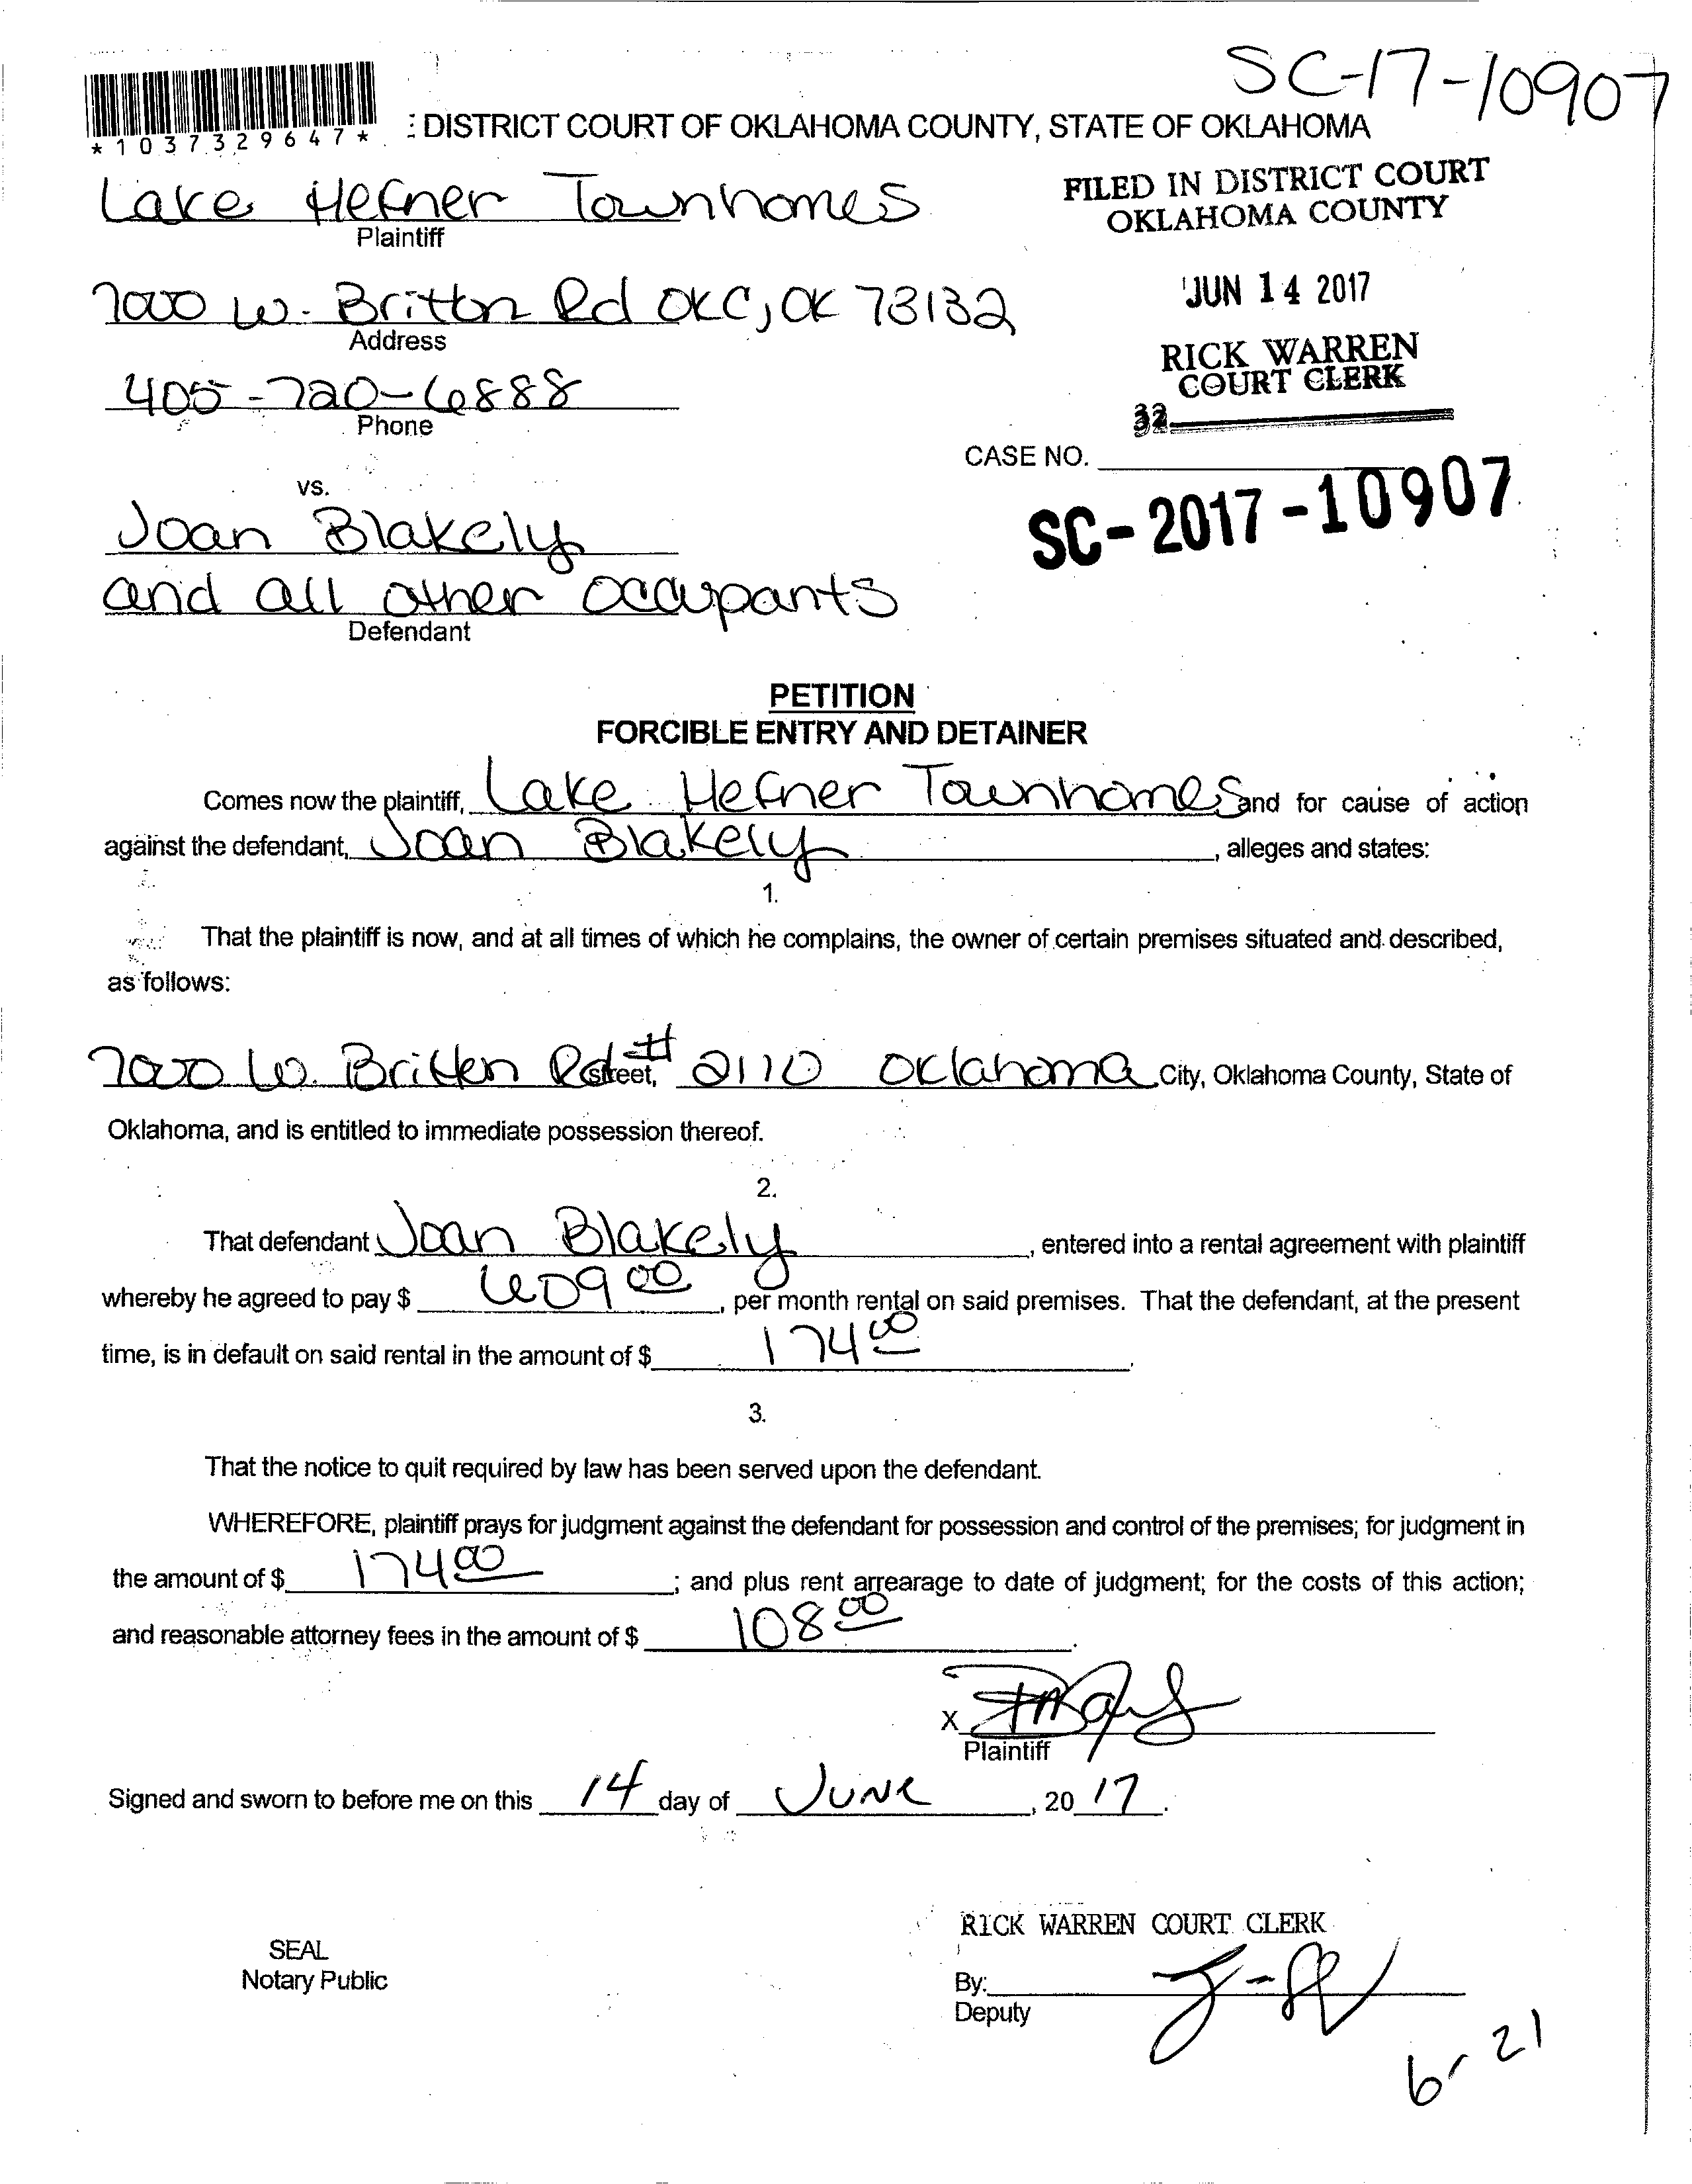 SC-17-10907
*1037329647*
: DISTRICT COURT OF OKLAHOMA COUNTY, STATE OF OKLAHOMA
Lake Hefner Townhomes
Plaintiff
FILED IN DISTRICT COURT
OKLAHOMA COUNTY
7000 W. Britton Rd OKC, OK 73132
Address
JUN 14 2017
RICK WARREN
COURT CLERK
405-720-6888
Phone
32
CASE NO.
SC-2017-10907
vs.
Joan Blakely
and all other occupants
Defendant
PETITION
FORCIBLE ENTRY AND DETAINER
Comes now the plaintiff, Lake Hefner Townhomes and for cause of action
against the defendant, Joan Blakely, alleges and states:
1.
That the plaintiff is now, and at all times of which he complains, the owner of certain premises situated and described,
as follows:
7000 W. Britten Rd street, # 2110 Oklahoma City, Oklahoma County, State of
Oklahoma, and is entitled to immediate possession thereof.
2.
That defendant Joan Blakely, entered into a rental agreement with plaintiff
whereby he agreed to pay $ 609 00, per month rental on said premises. That the defendant, at the present
time, is in default on said rental in the amount of $ 174 00.
3.
That the notice to quit required by law has been served upon the defendant.
WHEREFORE, plaintiff prays for judgment against the defendant for possession and control of the premises; for judgment in
the amount of $ 174 00; and plus rent arrearage to date of judgment; for the costs of this action;
and reasonable attorney fees in the amount of $ 108 00.
X
Plaintiff
Signed and sworn to before me on this 14 day of JUNE, 2017.
RICK WARREN COURT CLERK
SEAL
Notary Public
By:
Deputy
6-21